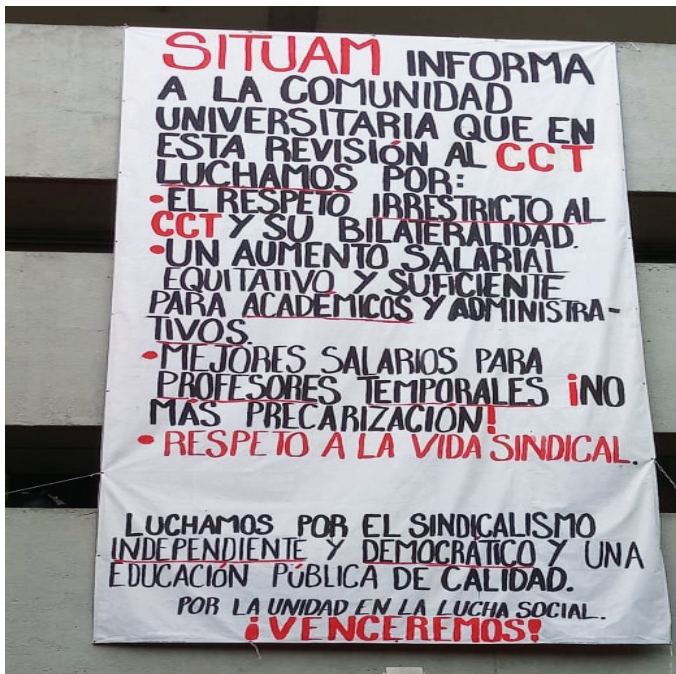 SITUAM INFORMA
A LA COMUNIDAD
UNIVERSITARIA QUE EN
ESTA REVISIÓN AL CCT
LUCHAMOS POR:
•EL RESPETO IRRESTRICTO AL
CCT Y SU BILATERALIDAD.
•UN AUMENTO SALARIAL
EQUITATIVO Y SUFICIENTE
PARA ACADÉMICOS Y ADMINISTRA-
TIVOS.
•MEJORES SALARIOS PARA
PROFESORES TEMPORALES ¡NO
MÁS PRECARIZACIÓN!
•RESPETO A LA VIDA SINDICAL.
LUCHAMOS POR EL SINDICALISMO
INDEPENDIENTE Y DEMOCRÁTICO Y UNA
EDUCACIÓN PÚBLICA DE CALIDAD.
POR LA UNIDAD EN LA LUCHA SOCIAL.
¡VENCEREMOS!